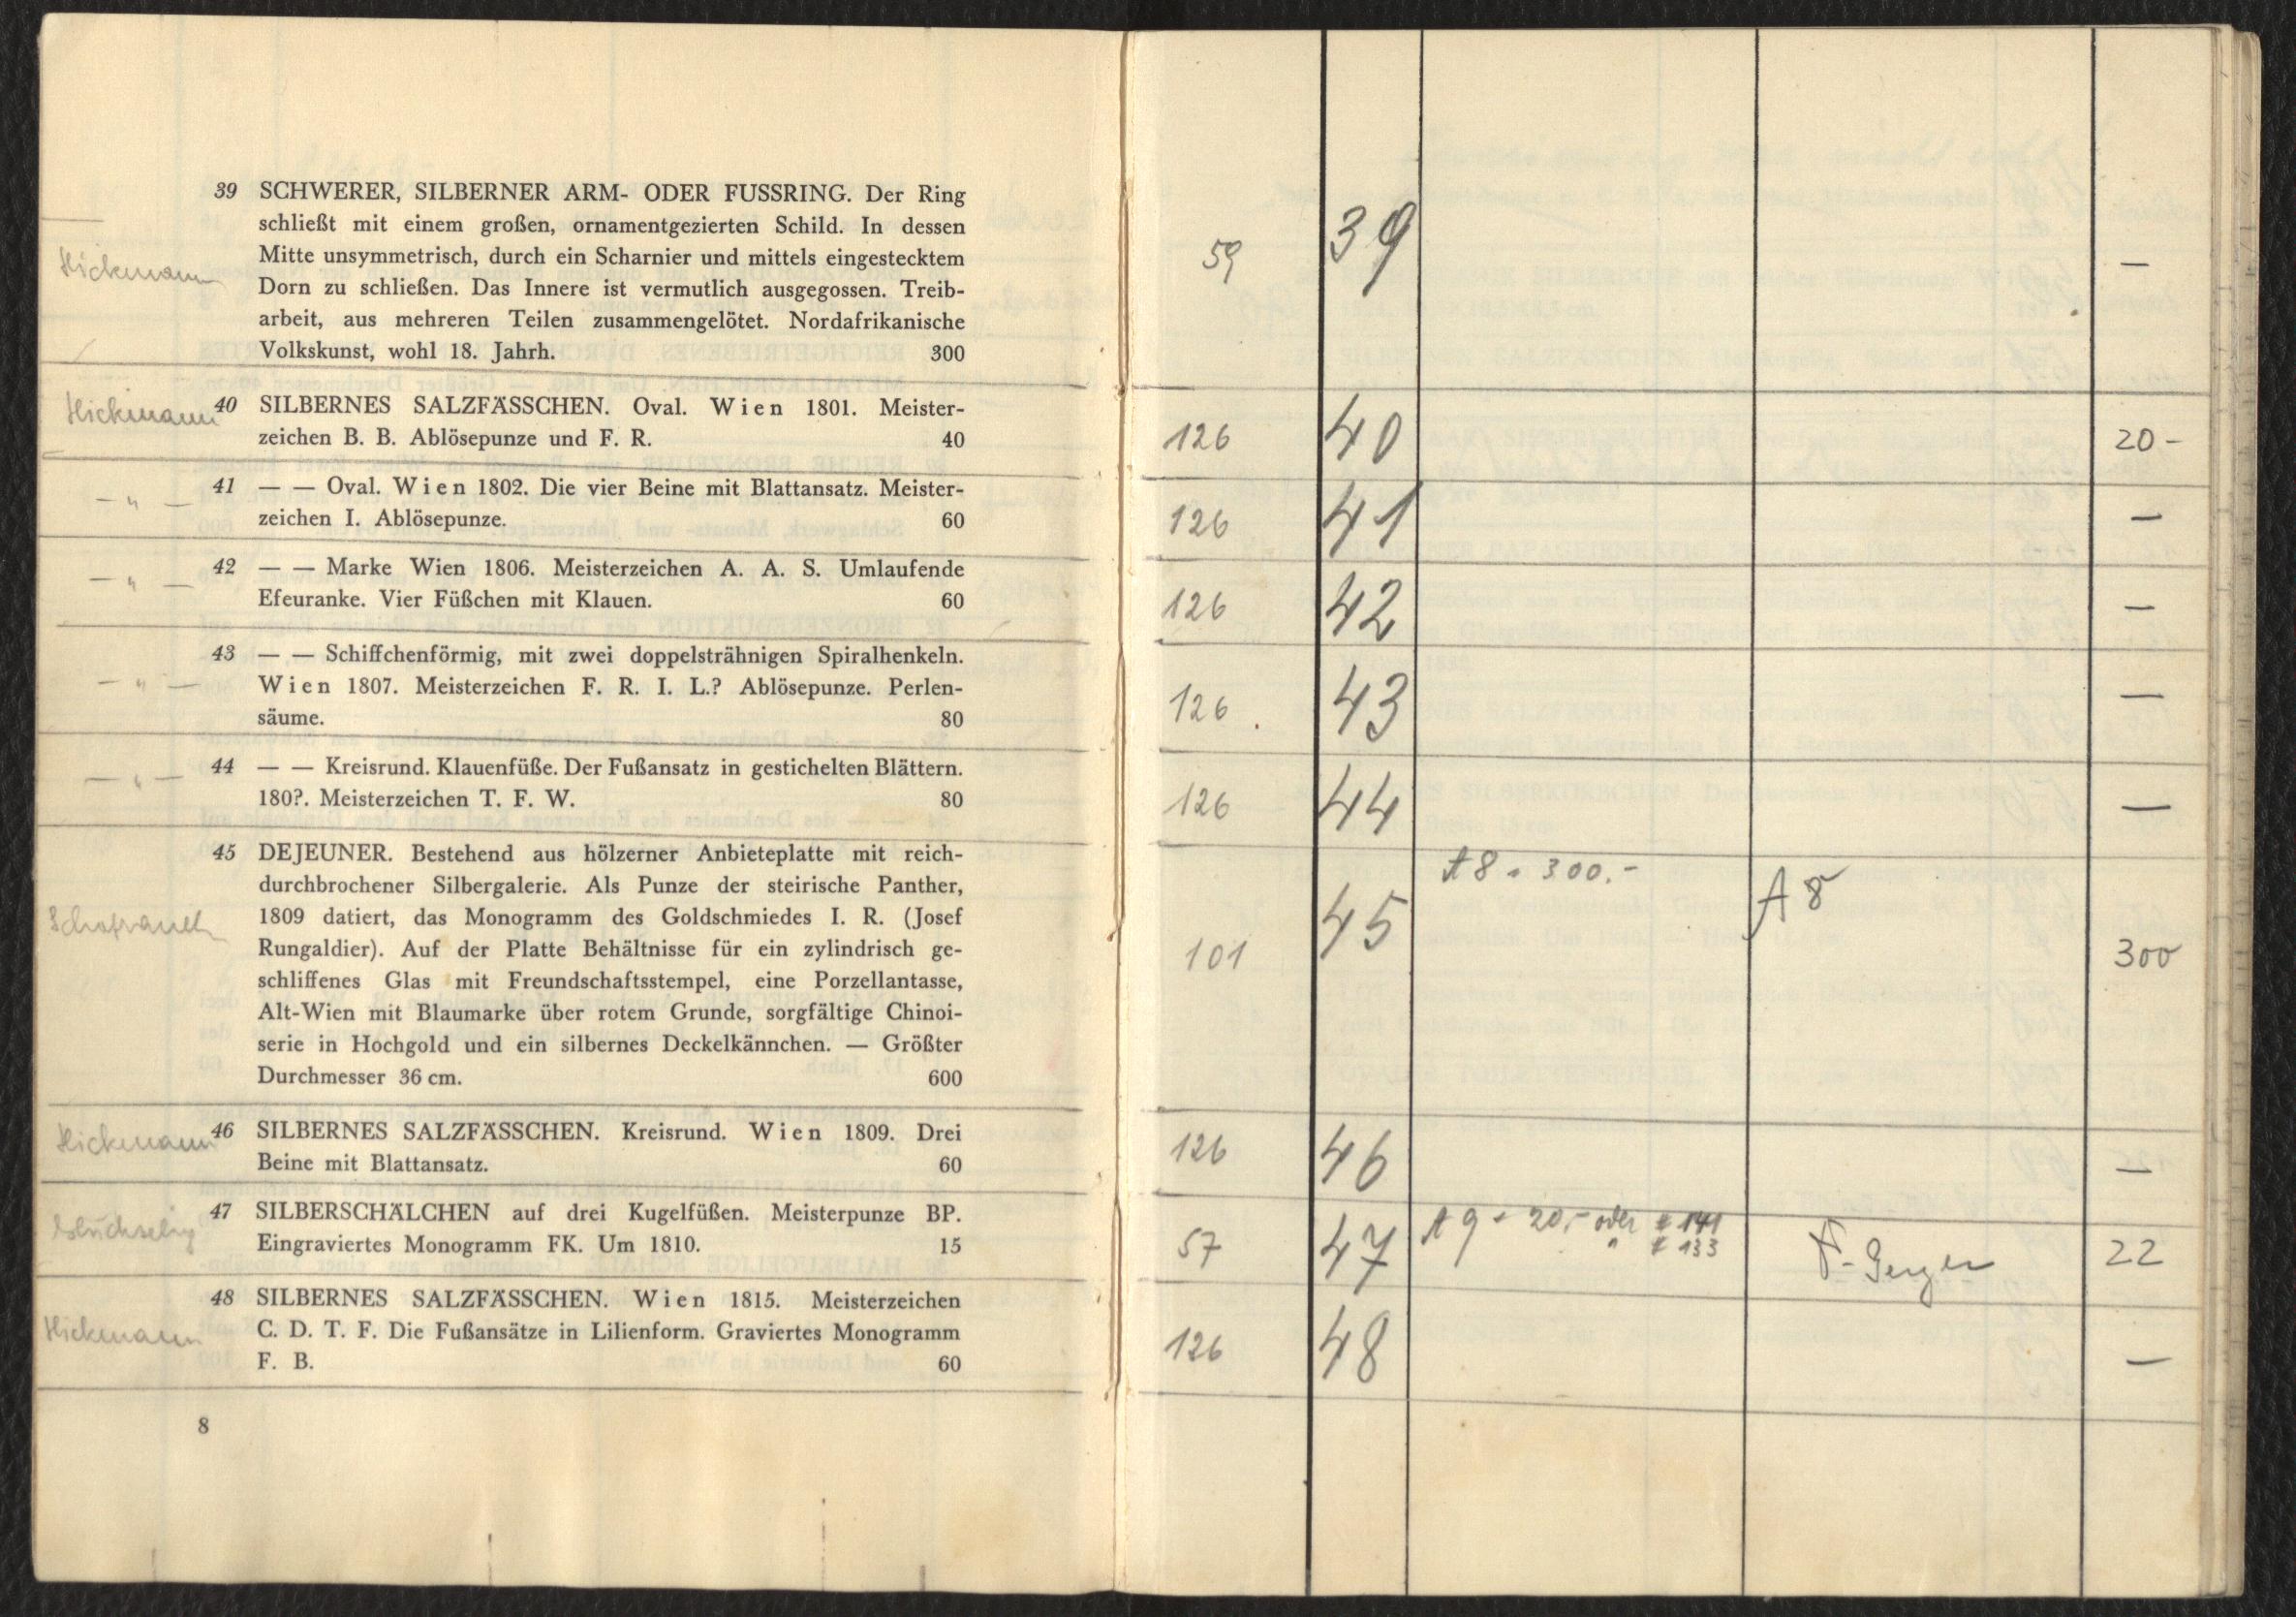 39 SCHWERER, SILBERNER ARM- ODER FUSSRING. Der Ring
schließt mit einem großen, ornamentgezierten Schild. In dessen
Hickmann
Mitte unsymmetrisch, durch ein Scharnier und mittels eingestecktem
Dorn zu schließen. Das Innere ist vermutlich ausgegossen. Treib-
arbeit, aus mehreren Teilen zusammengelötet. Nordafrikanische
Volkskunst, wohl 18. Jahrh. 300
Hickmann
40 SILBERNES SALZFÄSSCHEN. Oval. Wien 1801. Meister-
zeichen B. B. Ablösepunze und F. R. 40
— " —
41 — — Oval. Wien 1802. Die vier Beine mit Blattansatz. Meister-
zeichen I. Ablösepunze. 60
— " —
42 — — Marke Wien 1806. Meisterzeichen A. A. S. Umlaufende
Efeuranke. Vier Füßchen mit Klauen. 60
43 — — Schiffchenförmig, mit zwei doppelsträhnigen Spiralhenkeln.
— " —
Wien 1807. Meisterzeichen F. R. I. L.? Ablösepunze. Perlen-
säume. 80
— " —
44 — — Kreisrund. Klauenfüße. Der Fußansatz in gestichelten Blättern.
180?. Meisterzeichen T. F. W. 80
45 DEJEUNER. Bestehend aus hölzerner Anbieteplatte mit reich-
durchbrochener Silbergalerie. Als Punze der steirische Panther,
1809 datiert, das Monogramm des Goldschmiedes I. R. (Josef
Rungaldier). Auf der Platte Behältnisse für ein zylindrisch ge-
schliffenes Glas mit Freundschaftsstempel, eine Porzellantasse,
Alt-Wien mit Blaumarke über rotem Grunde, sorgfältige Chinoi-
serie in Hochgold und ein silbernes Deckelkännchen. — Größter
Durchmesser 36 cm. 600
Hickmann
46 SILBERNES SALZFÄSSCHEN. Kreisrund. Wien 1809. Drei
Beine mit Blattansatz. 60
47 SILBERSCHÄLCHEN auf drei Kugelfüßen. Meisterpunze BP.
Eingraviertes Monogramm FK. Um 1810. 15
48 SILBERNES SALZFÄSSCHEN. Wien 1815. Meisterzeichen
Hickmann
C. D. T. F. Die Fußansätze in Lilienform. Graviertes Monogramm
F. B. 60
8
59 39 —
126 40 20 -
126 41 —
126 42 —
126 43 —
126 44 —
A 8 = 300.-
101 45 A 8 300
126 46 —
A 9 = 20,- oder # 141
" # 133
57 47 22
126 48 —